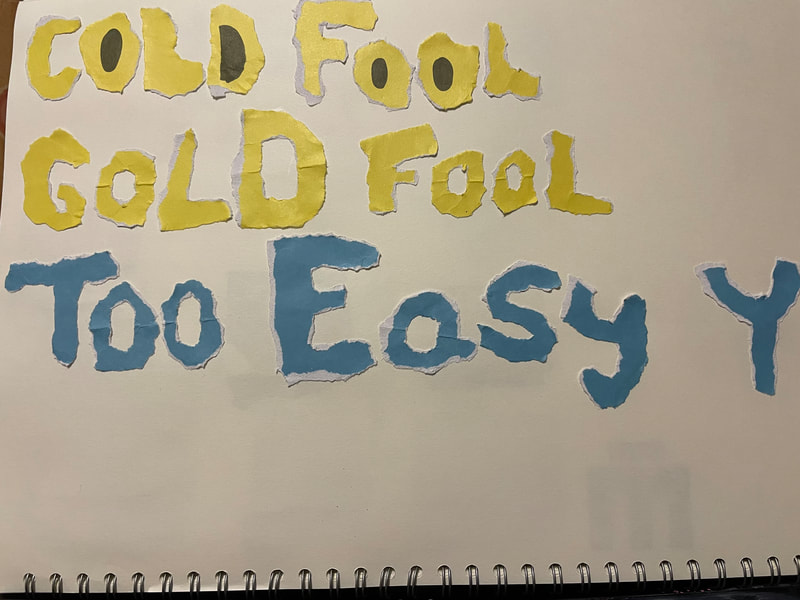 COLD FOOL
GOLD FOOL
Too Easy Y